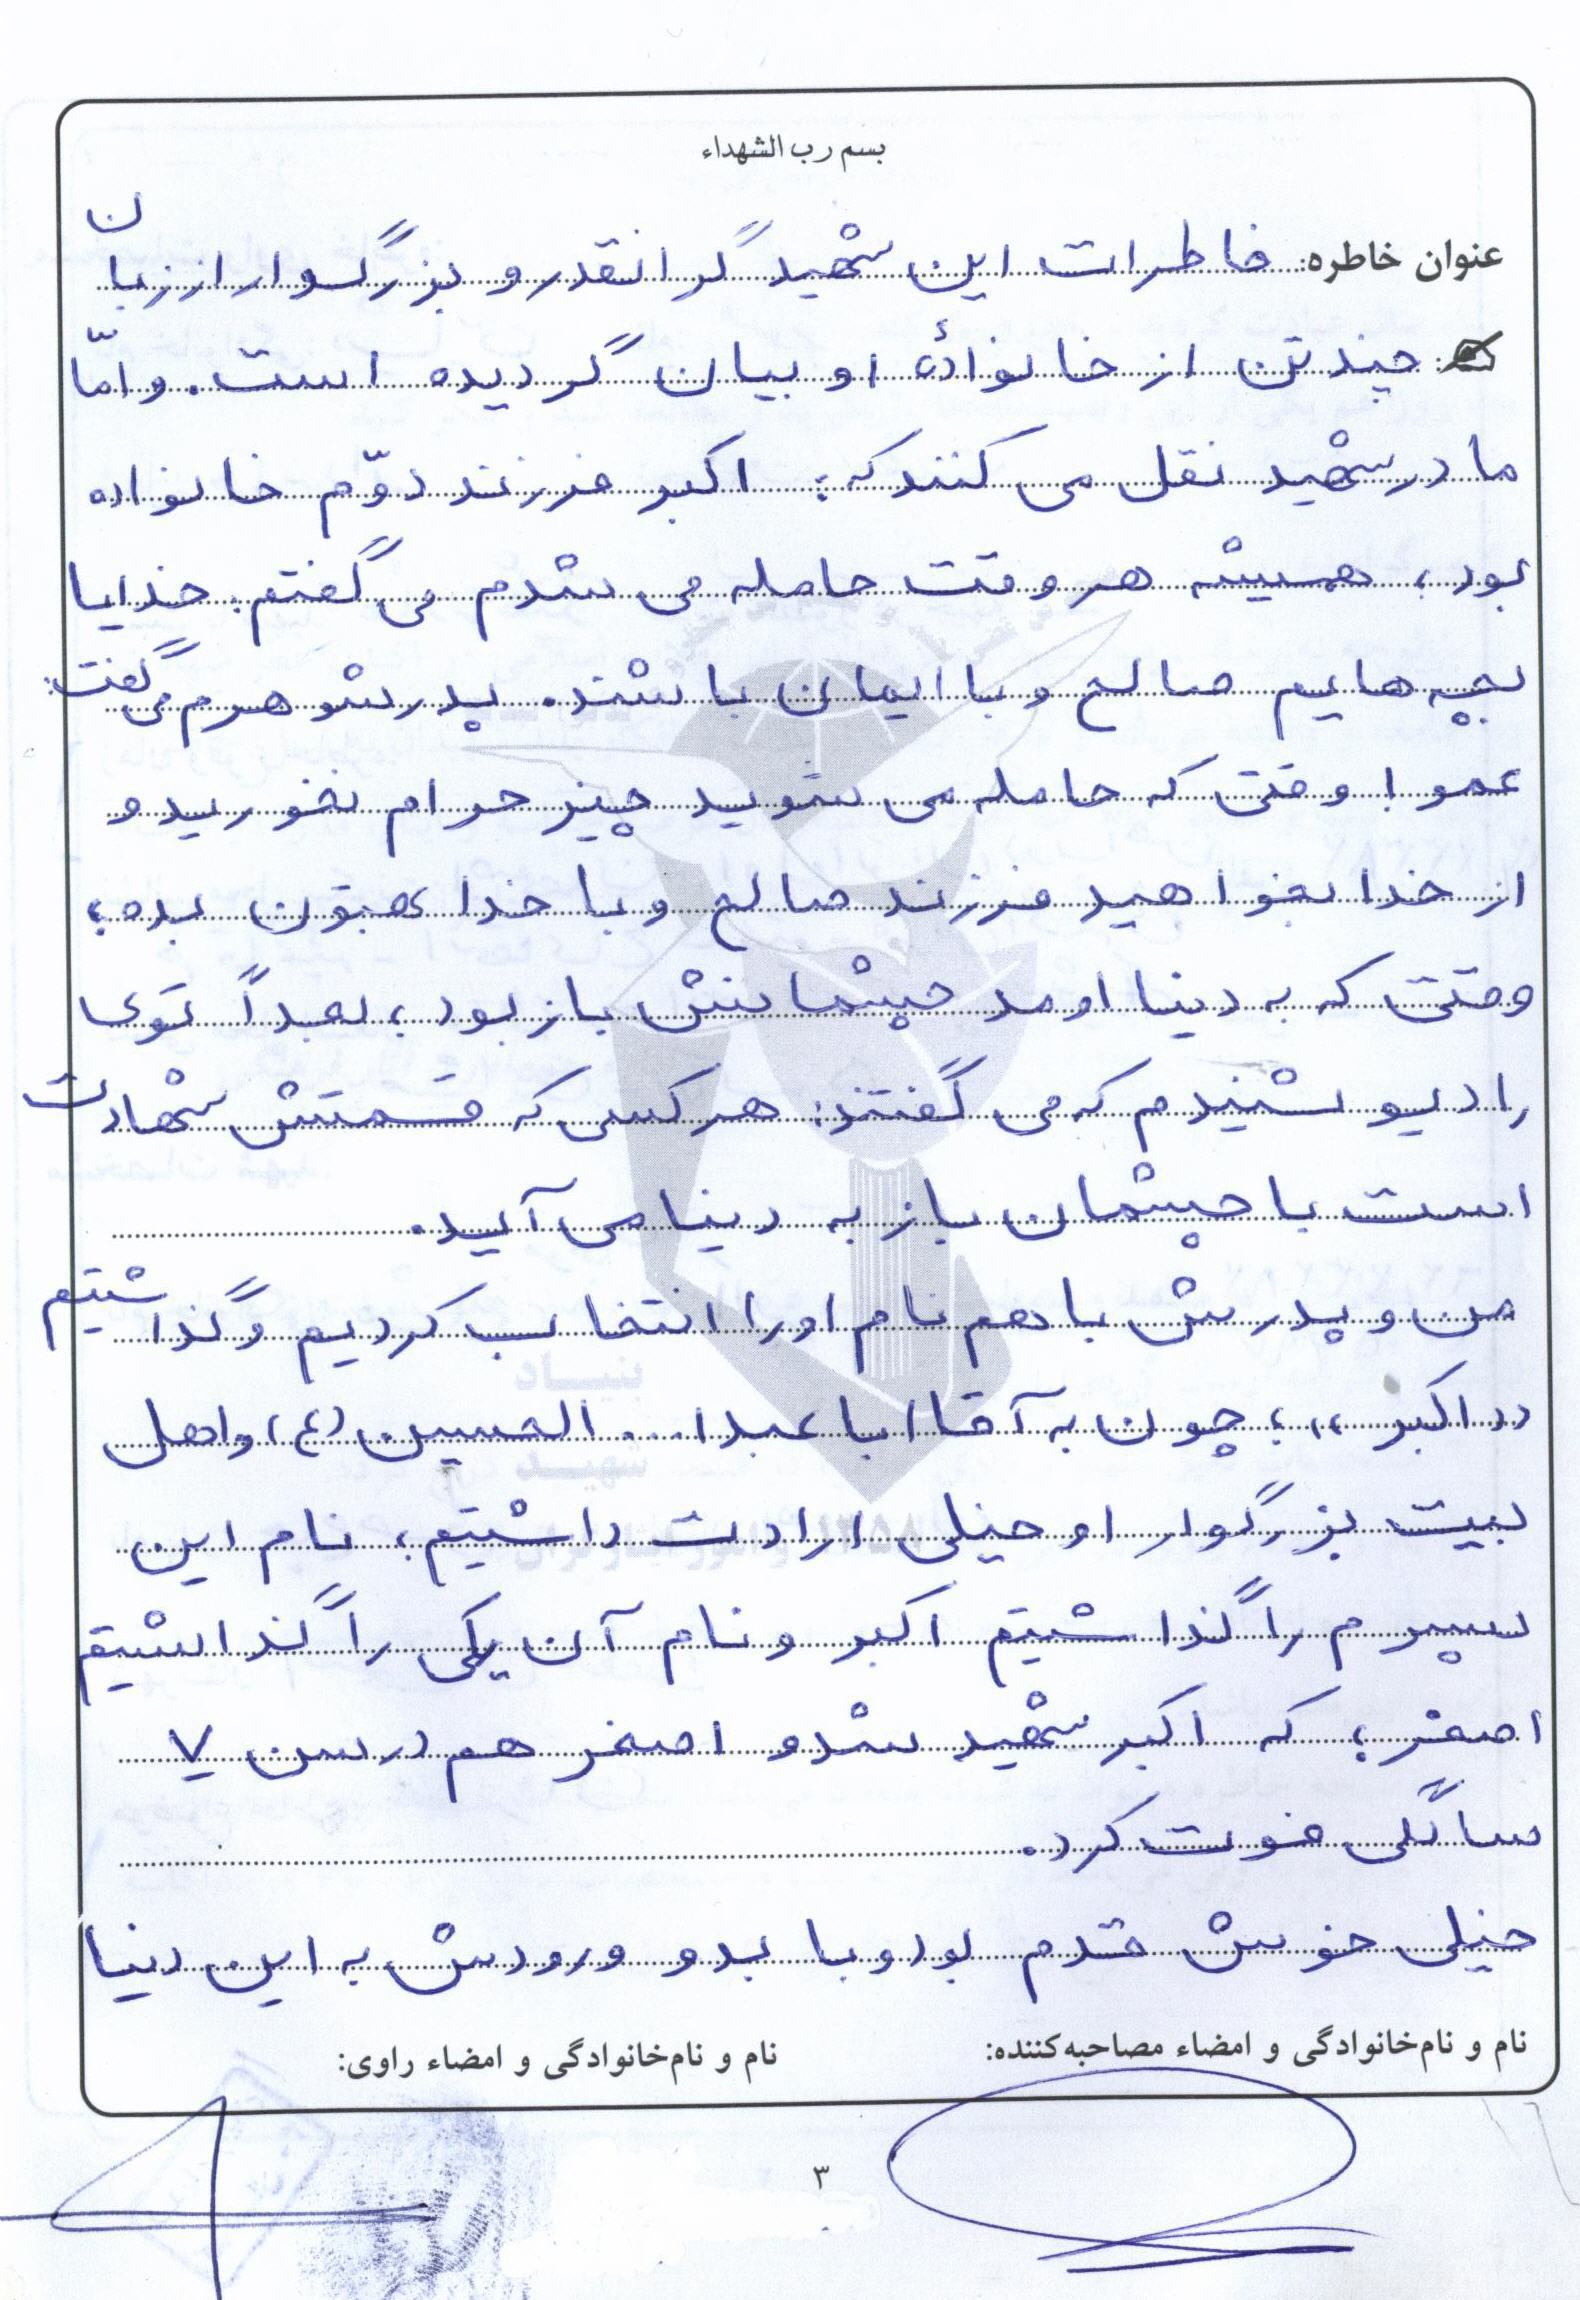 بسم رب الشهداء
عنوان خاطره: خاطرات این شهید گرانقدر و بزرگسوار از زبان
چند تن از خانوادهٔ او بیان گردیده است. و امّا
مادر شهید نقل می کنند که: اکبر فرزند دوّم خانواده
بود، همیشه هر وقت حامله می شدم می گفتم: خدایا
بچه هایم صالح و با ایمان باشند. پدرشوهرم می گفت:
عمو! وقتی که حامله می شوید چیز حرام نخورید و
از خدا بخواهید فرزند صالح و با خدا بهتون بده؛
وقتی که به دنیا اومد چشمانش باز بود، بعداً توی
رادیو شنیدم که می گفتند: هر کسی که قسمتش شهادت
است با چشمان باز به دنیا می آید.
من و پدرش با هم نام او را انتخاب کردیم و گذاشتیم
«اکبر»؛ چون به آقا ابا عبدا... الحسین (ع) و اهل
بیت بزرگوار او خیلی ارادت داشتیم، نام این
پسرم را گذاشتیم اکبر و نام آن یکی را گذاشتیم
اصغر؛ که اکبر شهید شد و اصغر هم در سن ۷
سالگی فوت کرد.
خیلی خوش قدم بود و با بدو ورودش به این دنیا
نام و نام‌خانوادگی و امضاء مصاحبه‌کننده:
نام و نام‌خانوادگی و امضاء راوی:
۳
بنیاد
شهید